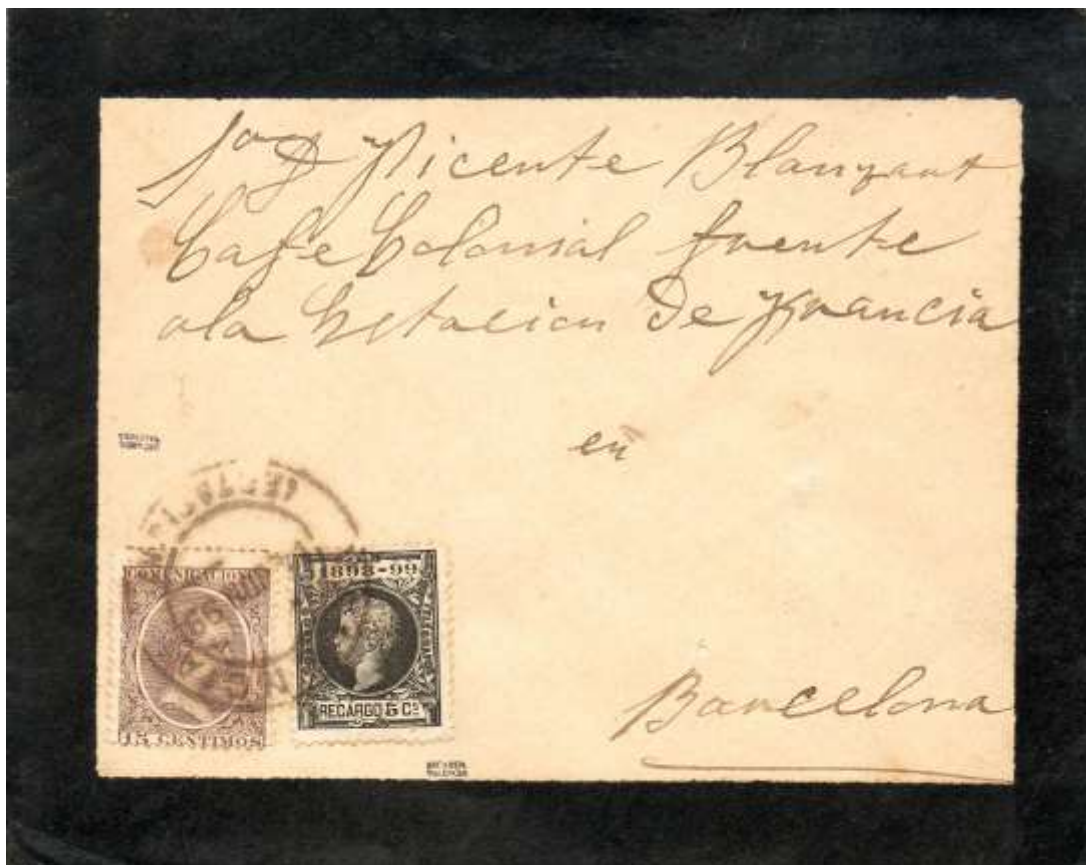 Sor D Vicente Blanquart
Cafe Colonial frente
ala Estacion De Francia
en
COMUNICACIONES
15 CENTIMOS
1898-99
RECARGO 5 Cs
Barcelona